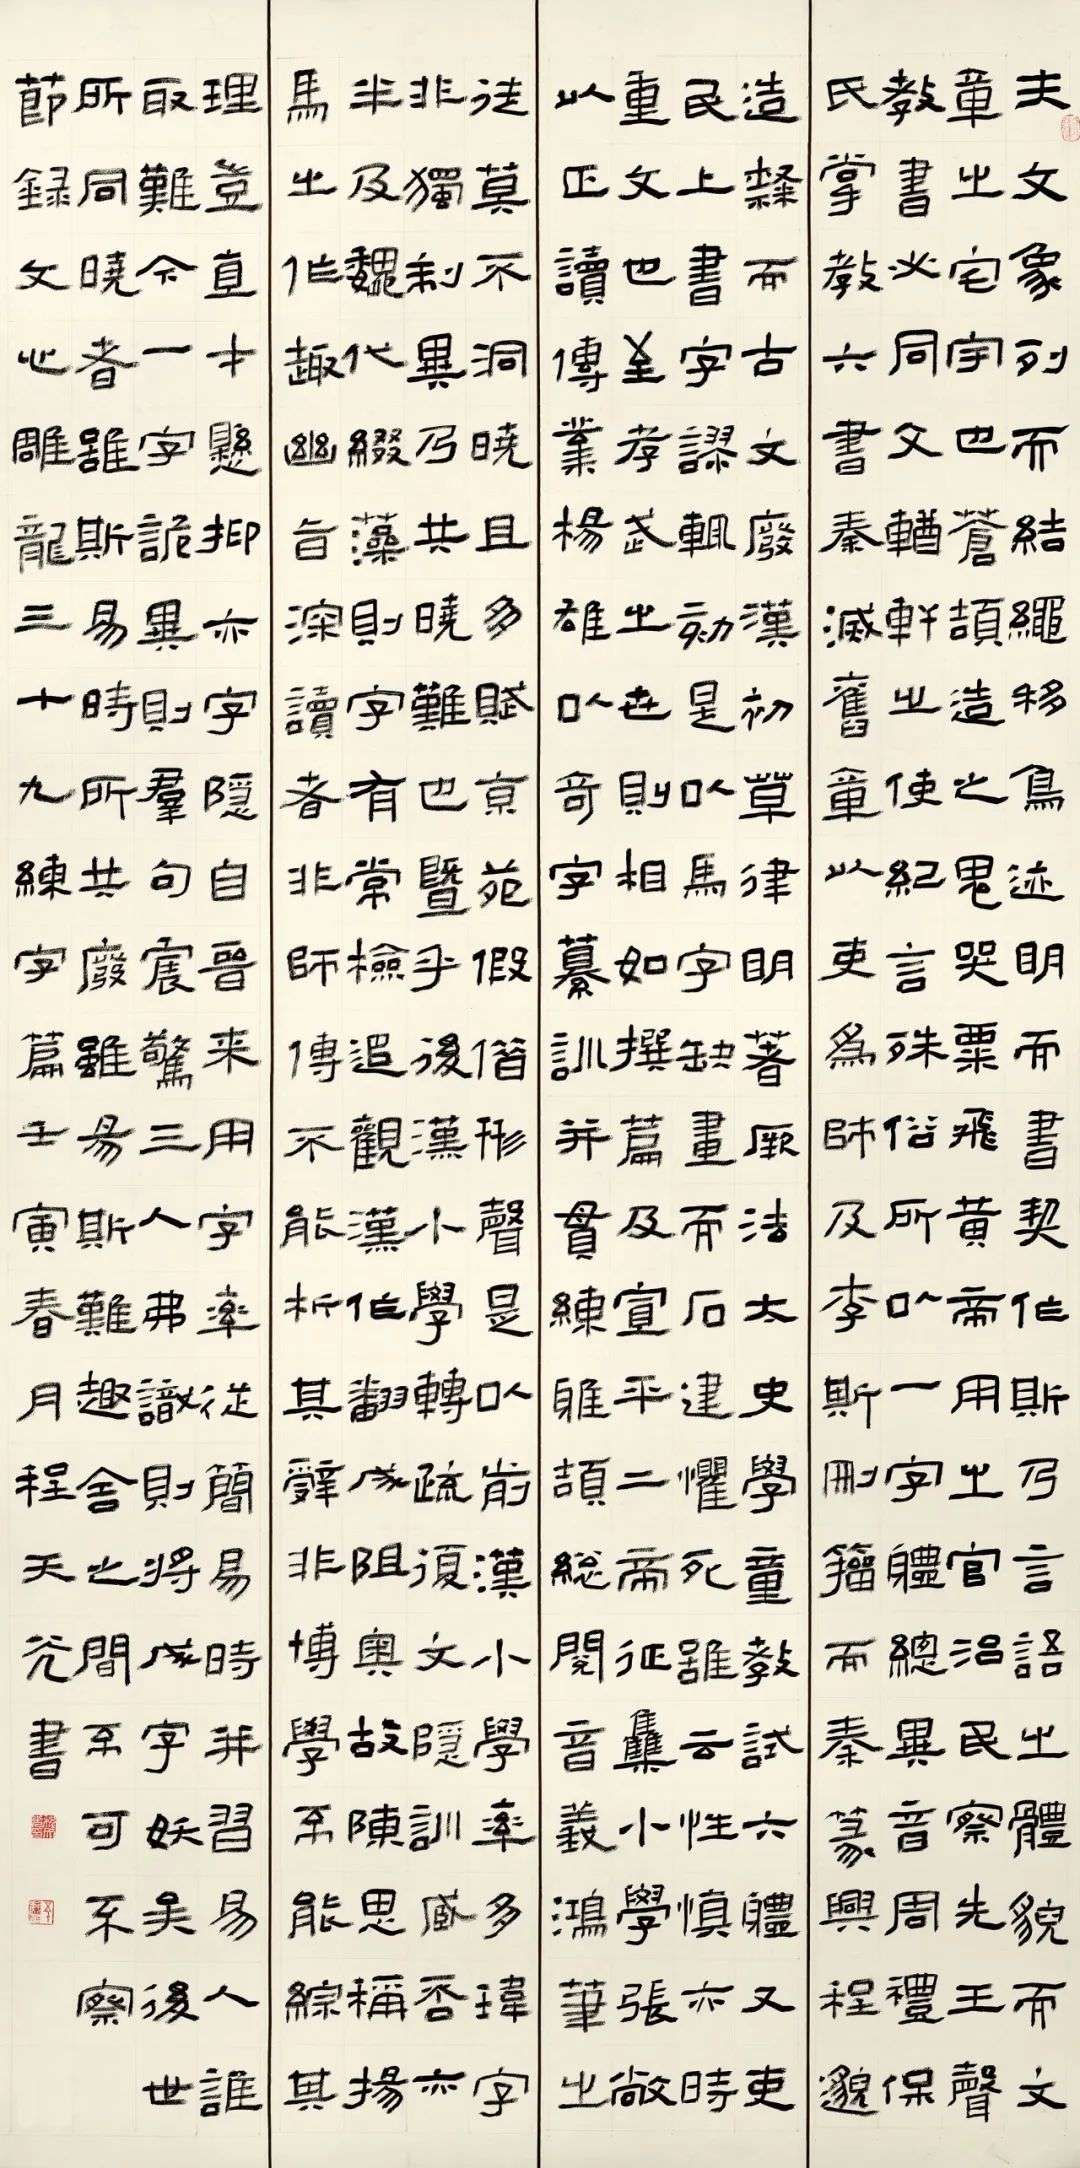 夫文象列而結繩移鳥迹明而書契作斯乃言語之體貌而文
章之宅宇也蒼頡造之鬼哭粟飛黃帝用之官治民察先王聲
教書必同文輶軒之使紀言殊俗所以一字體總異音周禮保
氏掌教六書秦滅舊章以吏為師及李斯刪籀而秦篆興程邈
造隸而古文廢漢初草律明著厥法太史學童教試六體又吏
民上書字謬輒劾是以馬字缺畫而石建懼死雖云性慎亦時
重文也至孝武之世則相如撰篇及宣平二帝征雧小學張敞
以正讀傳業楊雄以奇字纂訓并貫練雅頡總閱音義鴻筆之
徒莫不洞曉且多賦京苑假借形聲是以前漢小學率多瑋字
非獨制異乃共曉難也暨乎後漢小學轉疏復文隱訓臧否亦
半及魏代綴藻則字有常檢追觀漢作翻成阻奧故陳思稱揚
馬之作趣幽旨深讀者非師傳不能析其辭非博學不能綜其
理豈直才懸抑亦字隱自晉来用字率從簡易時并習易人誰
取難今一字詭異則羣句震驚三人弗識則將成字妖矣後世
所同曉者雖斯易時所共廢雖易斯難趣舍之間不可不察
節録文心雕龍三十九練字篇壬寅春月程天光書